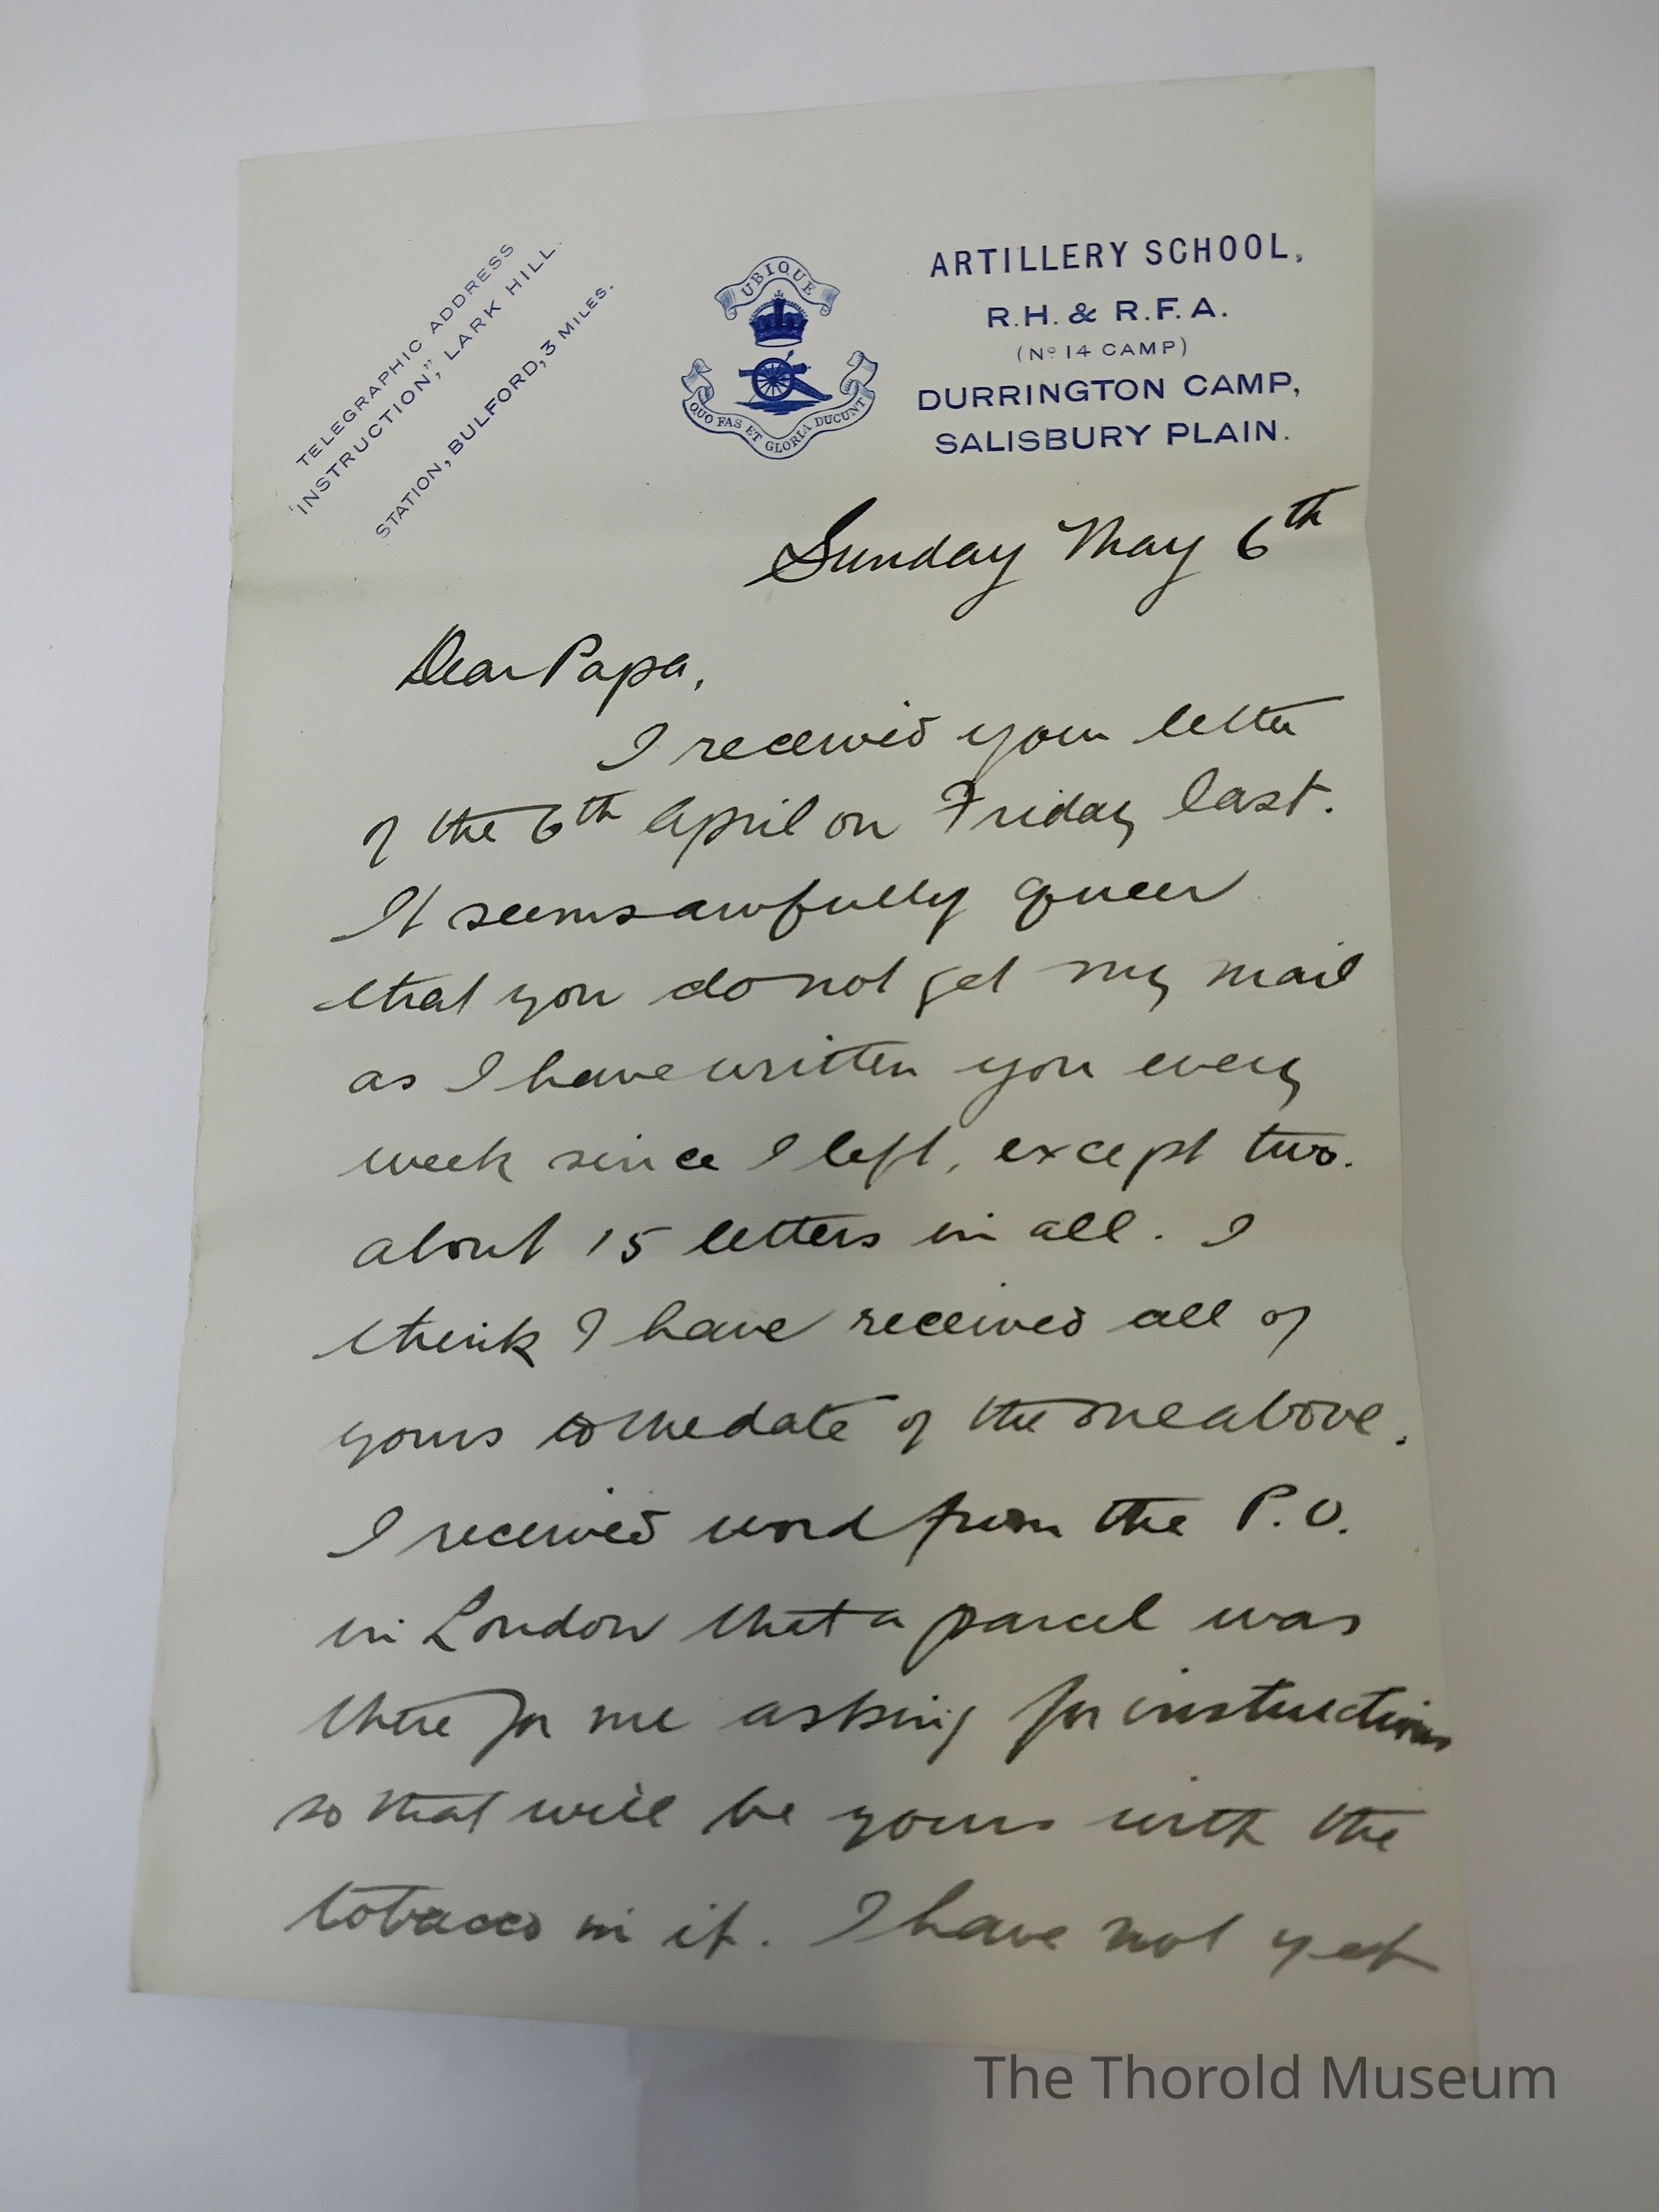 TELEGRAPHIC ADDRESS
"INSTRUCTION," LARK HILL.
STATION, BULFORD, 3 MILES.
UBIQUE
QUO FAS ET GLORIA DUCUNT
ARTILLERY SCHOOL,
R.H. & R.F.A.
(No 14 CAMP)
DURRINGTON CAMP,
SALISBURY PLAIN.
Sunday May 6th
Dear Papa,
I received your letter
of the 6th April on Friday last.
It seems awfully queer
that you do not get my mail
as I have written you every
week since I left, except two.
about 15 letters in all. I
think I have received all of
yours to the date of the one above.
I received word from the P.O.
in London that a parcel was
there for me asking for instructions
so that will be yours with the
tobacco in it. I have not yet
The Thorold Museum